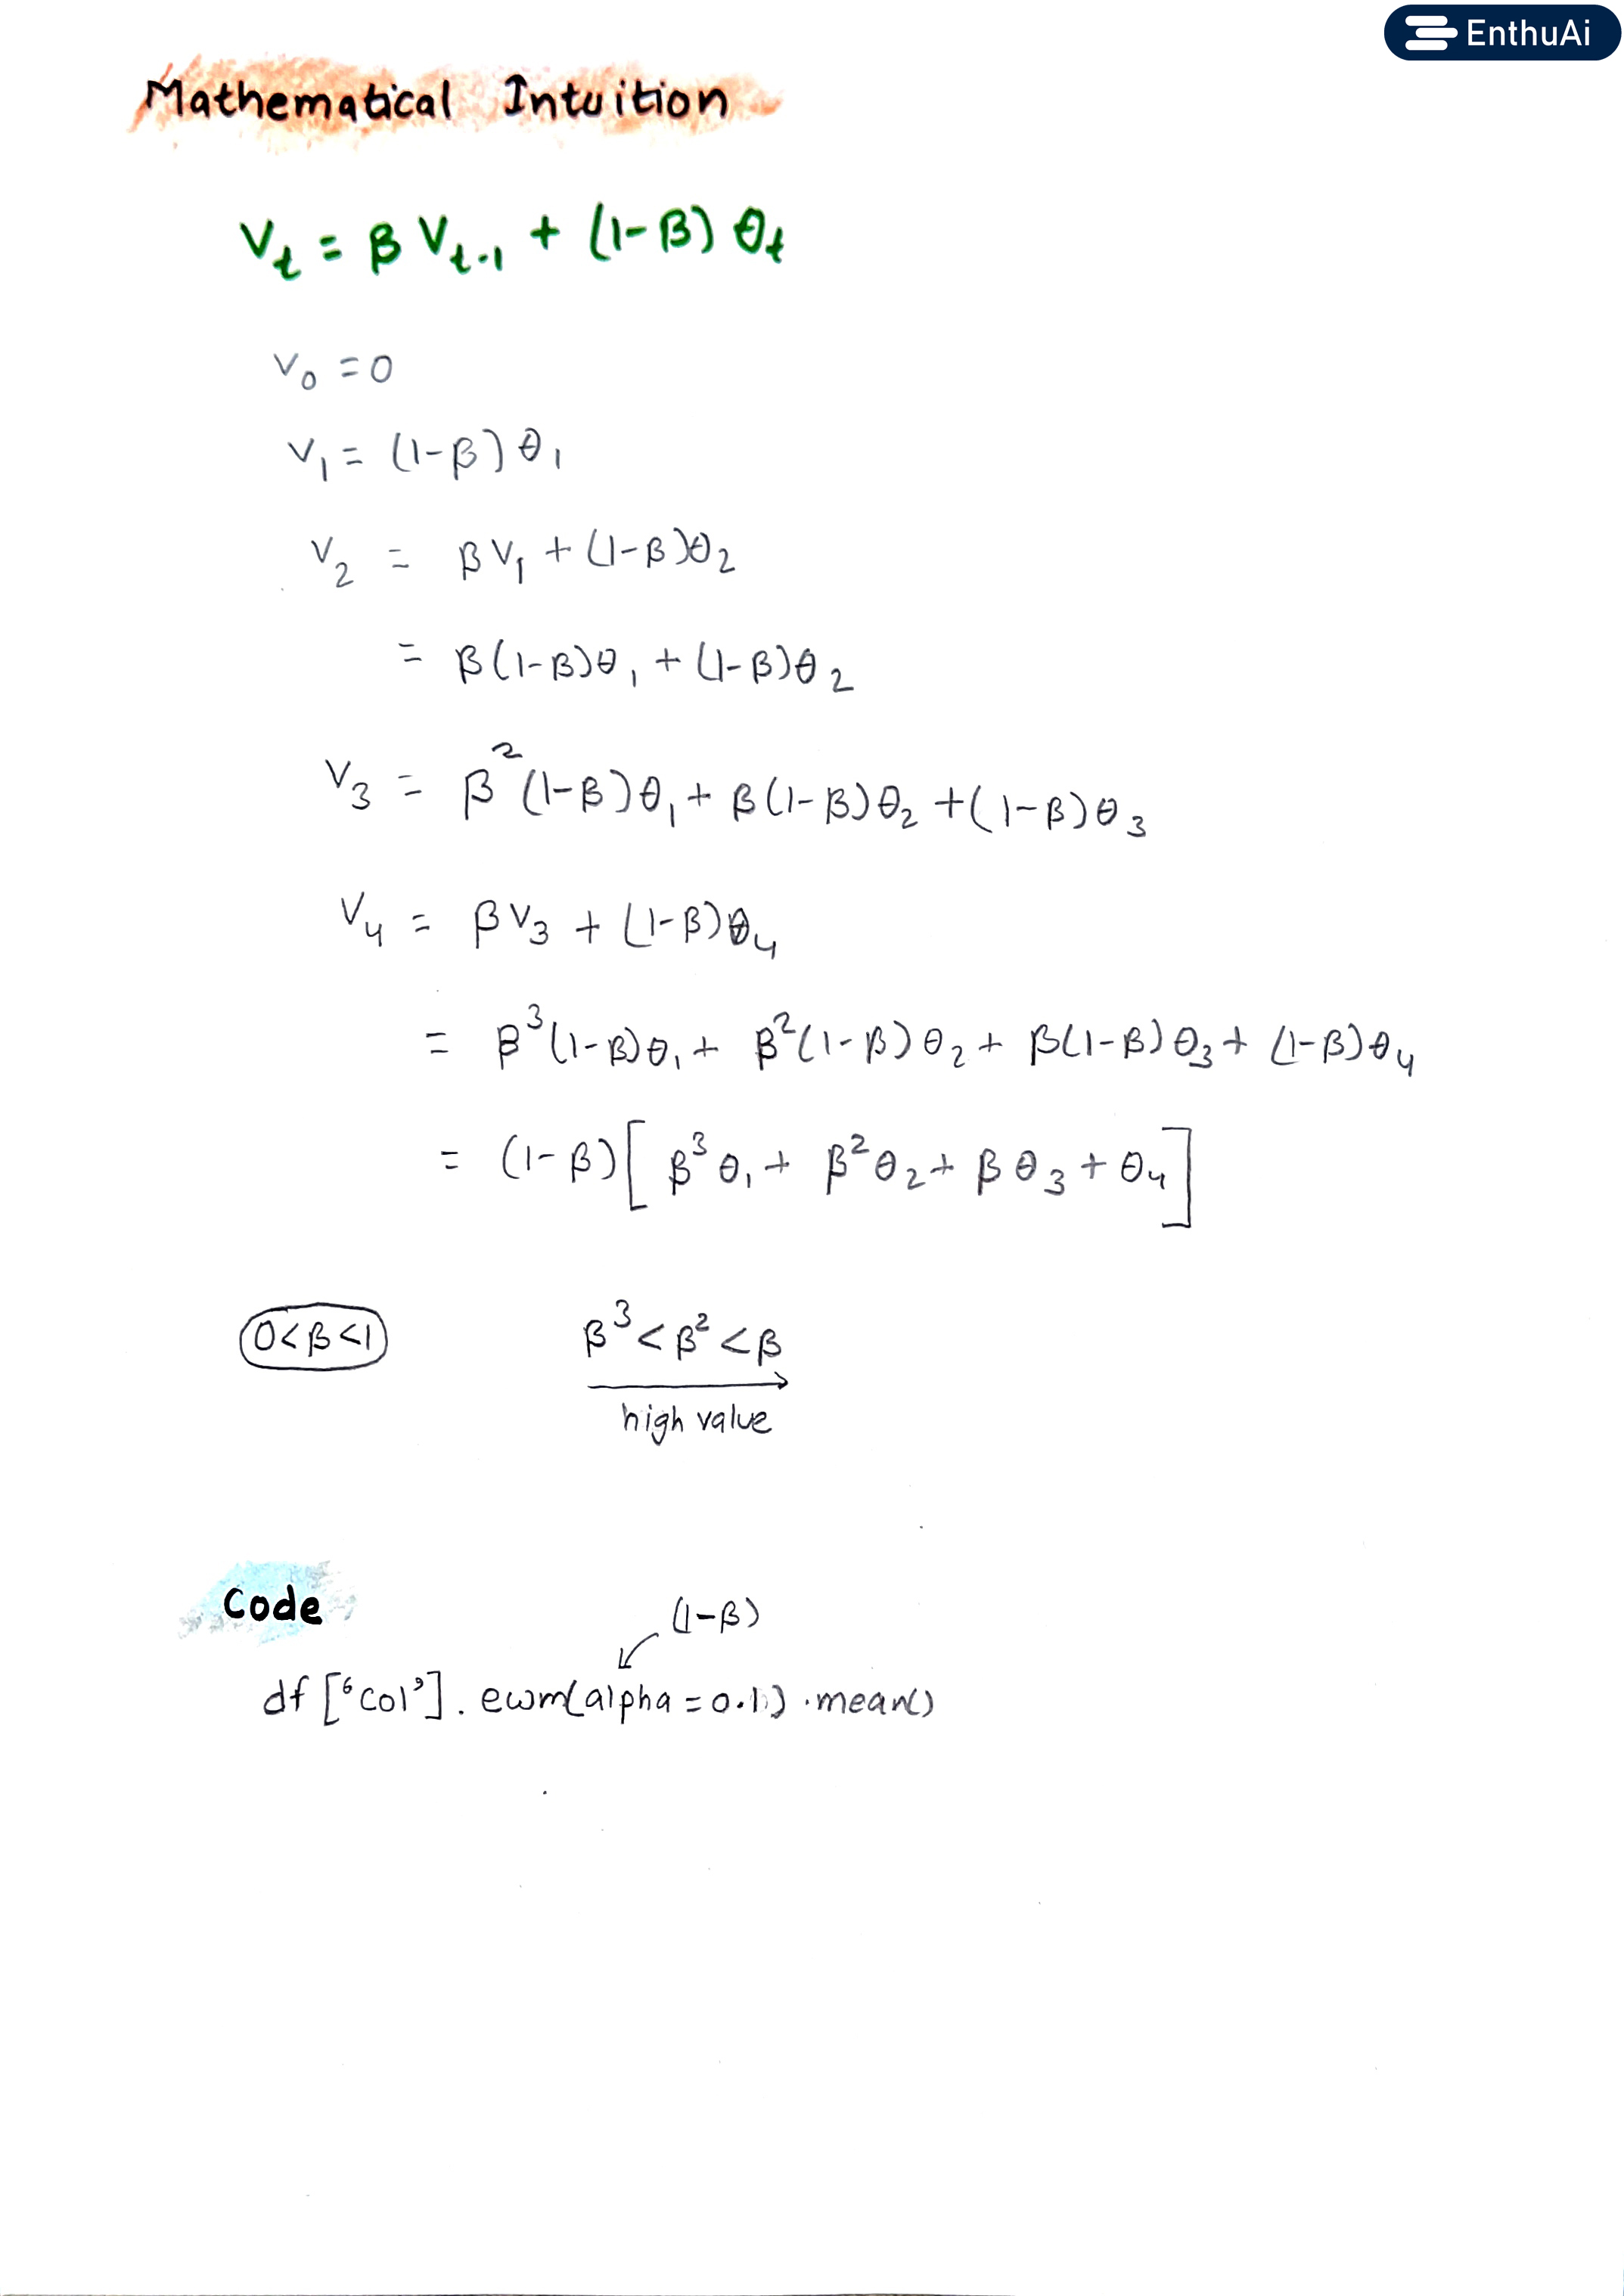 EnthuAi
Mathematical Intuition
Vt = β Vt-1 + (1-β) θt
V0 = 0
V1 = (1-β) θ1
V2 = βV1 + (1-β)θ2
= β(1-β)θ1 + (1-β)θ2
V3 = β²(1-β)θ1 + β(1-β)θ2 + (1-β)θ3
V4 = βV3 + (1-β)θ4
= β³(1-β)θ1 + β²(1-β)θ2 + β(1-β)θ3 + (1-β)θ4
= (1-β)[β³θ1 + β²θ2 + βθ3 + θ4]
0<β<1 β³<β²<β
high value
Code
(1-β)
df[‘col’].ewm(alpha=0.1).mean()